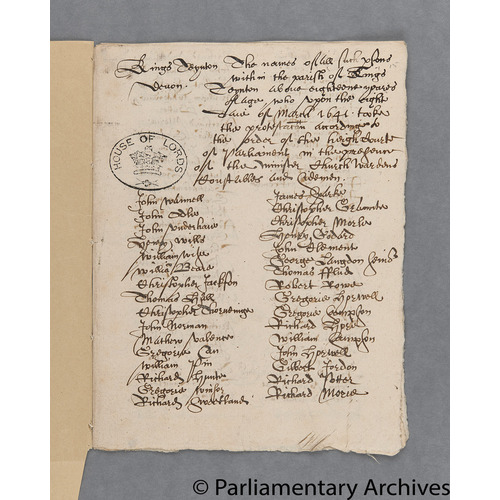 Kings Teynton
Devon.
The names of all such psons
within the parish of Kings
Teynton above eighteene yeares
of age, who vpon the eight
daie of March 1641 tooke
the protestation according to
the order of the heigh Courte
of Parliament in the presence
of the Minister Church wardens
Constables and
HOUSE OF LORDS
John Wannell
John
John Vnderhaie
Henry Wills
William
William Beare
Christopher Jackson
Thomas Hall
Christopher
John Norman
Mathew Valence
Gregorie
William
Richard Hunte
Gregorie Winsor
Richard
James
Christopher
Christopher Morle
Henry Godard
John Clement
George Langdon
Thomas
Robert Rowe
Gregorie Horwell
Gregorie Campson
Richard
William Campson
John Horwell
Gilbert Jordon
Richard Potter
Richard Morie
© Parliamentary Archives